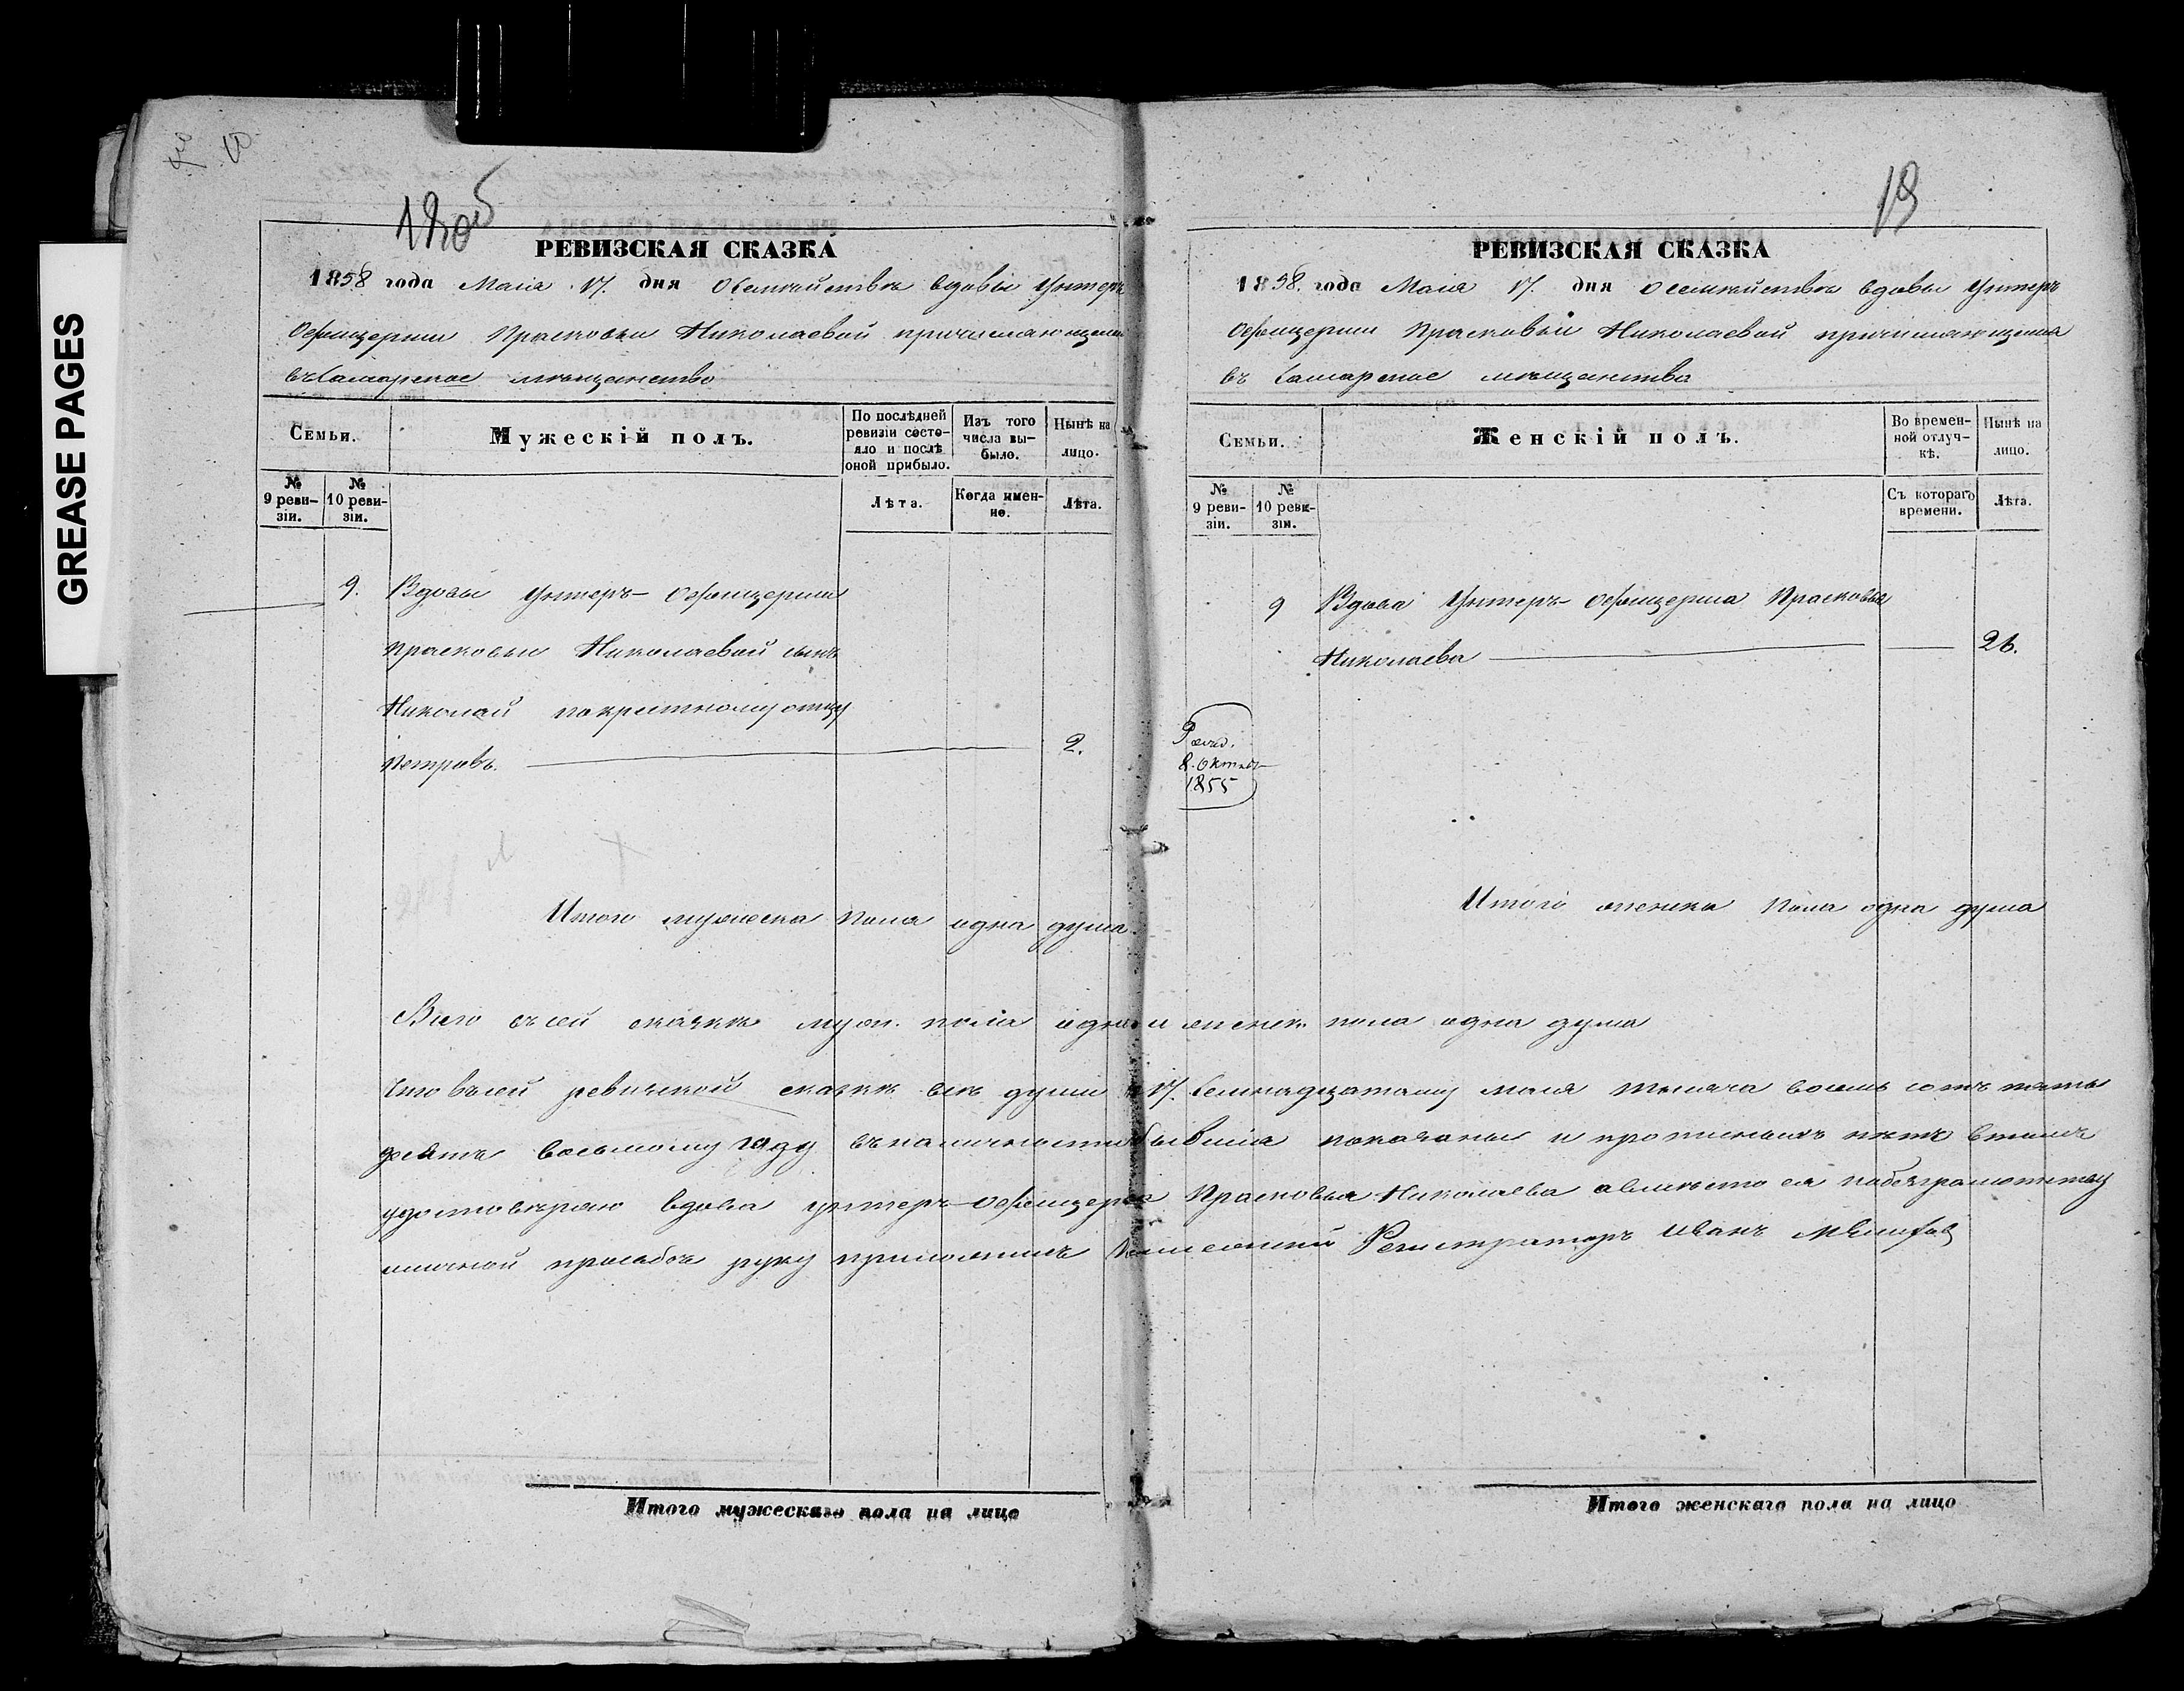 GREASE PAGES
18об
РЕВИЗСКАЯ СКАЗКА
1858 года Маія 17. дня О семѣйствѣ вдовы Унтеръ
Офицерши Прасковьи Николаевой причисляющейся
въ Самарское мѣщанство
Семьи.
Мужескій полъ.
По послѣдней ревизіи состояло и послѣ оной прибыло.
Изъ того числа выбыло.
Нынѣ на лицо.
№ 9 ревизіи.
№ 10 ревизіи.
Лѣта.
Когда именно.
Лѣта.
9. Вдовы Унтеръ-Офицерши
Прасковьи Николаевой сынъ
Николай по крестному отцу
Петровъ. 2.
Итого мужеска пола одна душа.
19
РЕВИЗСКАЯ СКАЗКА
1858. года Маія 17. дня о семѣйствѣ вдовы Унтеръ
Офицерши Прасковьи Николаевой причисляющейся
въ Самарское мѣщанство
Семьи.
Женскій полъ.
Во временной отлучкѣ.
Нынѣ на лицо.
№ 9 ревизіи.
№ 10 ревизіи.
Съ котораго времени.
Лѣта.
9 Вдова Унтеръ-Офицерша Прасковья
Николаева 26.
8. Октяб
1855
Итого женска пола одна душа
Всего в сей сказкѣ муж. пола одна и женск. пола одна душа
Что въ сей ревизской сказкѣ всѣ души к 17. Семнадцатому маія тысяча восемь сотъ пять
десятъ восьмому году въ наличности бывшіа показаны и прописныхъ нѣтъ в томъ
удостовѣряю вдова унтеръ-офицерша Прасковья Николаева а вмѣсто ея по безграмотству
и личной просьбѣ руку приложилъ Регистраторъ Иванъ
Итого мужескаго пола на лицо
Итого женскаго пола на лицо